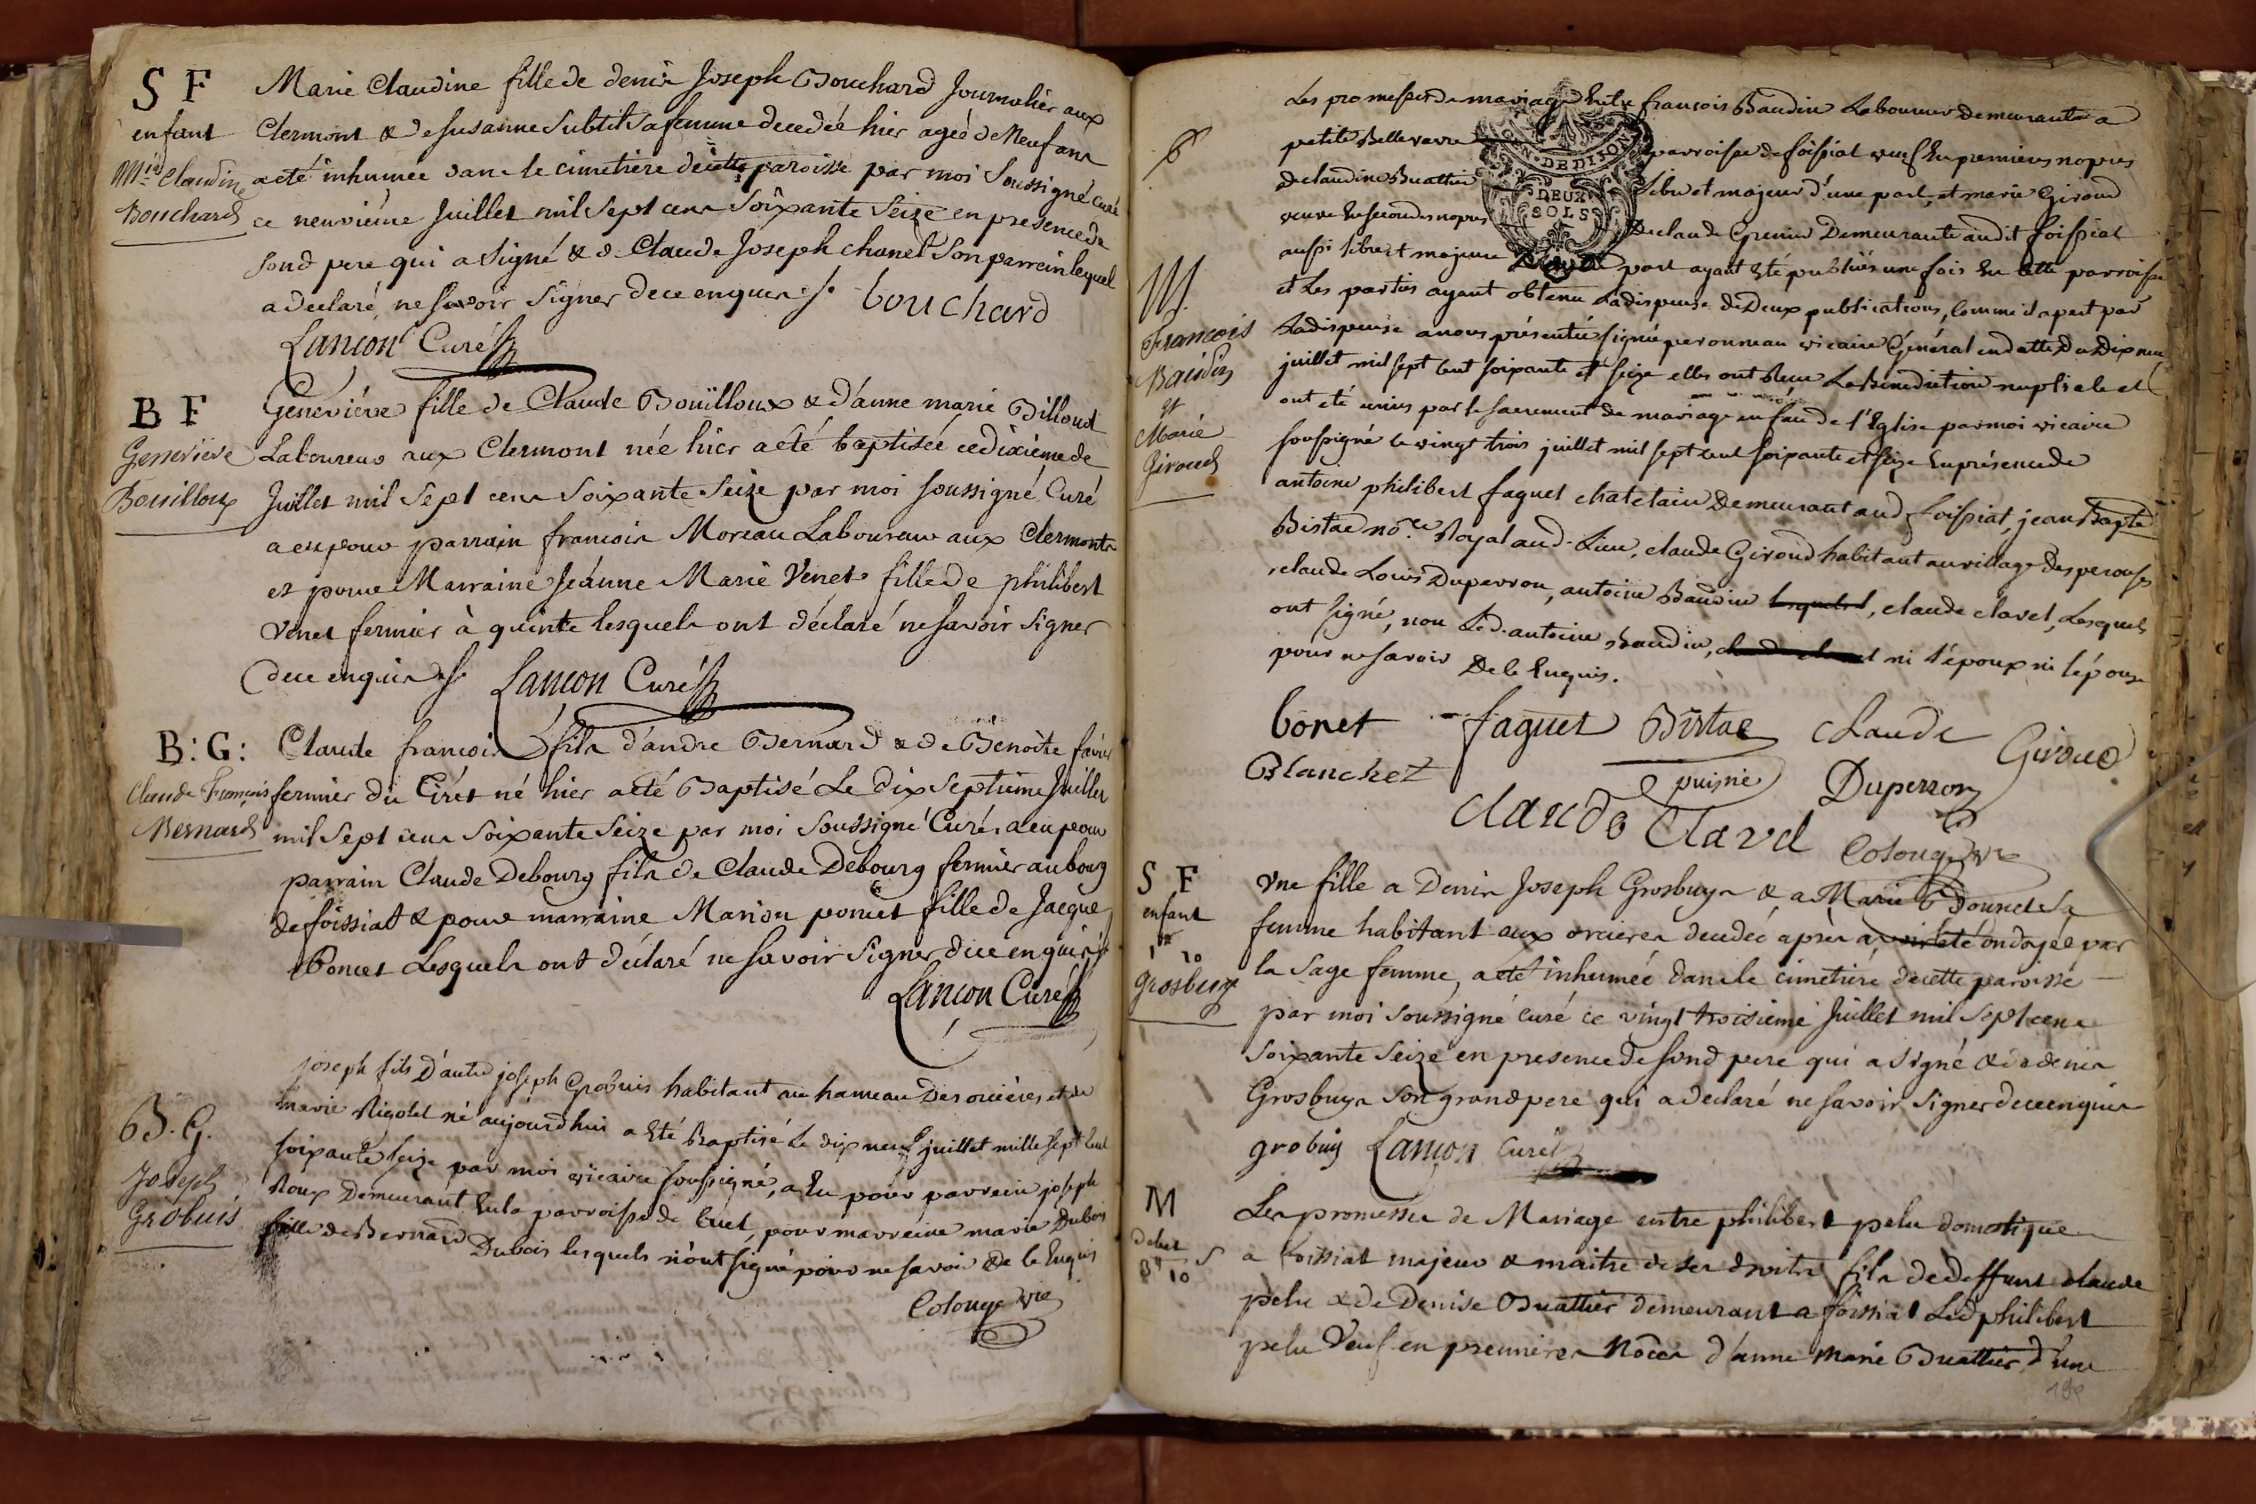 S F
enfant
M.ie Claudine
Bouchard
Marie Claudine fille de denis Joseph Bouchard Journalier aux
Clermont & de Susanne Subtil Sa femme decedée hier ageé de Neuf ans
a eté inhumée dans le cimetière de cette paroisse par moi Soussigné Curé
ce neuvième Juillet mil Sept cens Soixante Seize en presence de
Sond pere qui a Signé & de Claude Joseph chanel Son parrein lequel
a declaré ne Savoir Signer de ce enquis bouchard
Lançon Curé
B F
Geneviève
Bouilloux
Geneviéve fille de Claude Bouilloux & d'anne marie Billoud
Laboureus aux Clermont née hier a eté baptisée ce dixième de
Juillet mil Sept cens Soixante Seize par moi Soussigné Curé
a eu pour parrain francois Moreau Laboureur aux Clermonts
et pour Marraine Jeanne Marie Venet fille de philibert
Venet fermier à quinte lesquels ont déclaré ne Savoir Signer
de ce enquis Lançon Curé
B : G :
Claude François
Bernard
Claude francois fils d'andre Bernard & de Benoite favier
fermier du Cirét né hier a eté Baptisé Le dix Septième Juillet
mil Sept cens Soixante Seize par moi Soussigné Curé a eu pour
parrain Claude Debourg fils de Claude Debourg fermier au bourg
de foissiat & pour marraine Marion poncet fille de Jacque
Poncet Lesquels ont déclaré ne Savoir Signer de ce enquis
Lançon Curé
B. G.
Joseph
Gröbuis
joseph fils D'autre joseph Grobuis habitant au hameau Des orcières et de
marie Rigolet né aujourdhui a Eté Baptisé Le dix neuf juillet mille Sept Cent
Soixante Seize par moi vicaire Soussigné, a Eu pour parrein joseph
Roux Demeurant En la parroisse de Cuet, pour marreine marie Dubois
fille de Bernard Dubois lesquels n'ont signé pour ne savoir De le Enquis
Colonge vre
M.
François
Baudin
et
Marie
Giroud
GEN. DE DIJON
DEUX
SOLS
Les promesses de mariage Entre francois Baudin Laboureur demeurante a
petite Bellevavre parroisse de foissiat veuf En premieres nopces
De claudine Buathier Libre et majeur d'une part, et marie Giroud
veuve En secondes nopces De claude Grenier Demeurante audit foissiat
aussi libre et majeure part ayant Eté publiés une fois En cette parroisse
et Les parties ayant obtenu La dispense de Deux publications, comme il apert par
La dispense a nous présentée signée peronneau vicaire Général en datte Du Dix neuf
juillet mil sept cent soixante et seize elles ont Reçu La Bénédiction nuptiale et
ont été unies par le sacrement de mariage en face de l'Eglise par moi vicaire
soussigné le vingt trois juillet mil sept cent soixante et seize En présence de
antoine philibert faguet chatelain Demeurant aud foissiat, jean Bapte
Bistac nore. Royal aud. Lieu, claude Giroud habitant au village des perouses
claude Louis Duperron, antoine Baudin lesquels, claude clavel, Lesquels
ont signé, non Led. antoine Baudin, ni l'époux ni l'épouse
pour ne savoir De le Enquis.
bonet faguet Bistac Claude Giroud
Blanchet puisné Duperron
Claude Clavel Colonge vre
S F
enfant
grosbuys
Une fille a Denis Joseph Grosbuys & a Marie Donnet Sa
femme habitant aux orcieres decedée après avoir eté ondoyée par
la Sage femme, a eté inhumée dans le cimetière de cette paroisse
par moi Soussigné curé ce vingt troisieme Juillet mil Sept cens
Soixante Seize en presence de Sond pere qui a Signé & de denis
Grosbuys Son grand pere qui a declaré ne Savoir Signer de ce enquis
grobuis Lançon Curé
M
Les promesses de Mariage entre philibert pelu domestique
a foissiat majeur & maitre de ses droits fils de deffunt claude
pelu & de Denise Buathier demeurant a foissiat Led philibert
pelu Veuf en premières Noces d'anne Marie Buathier d'une